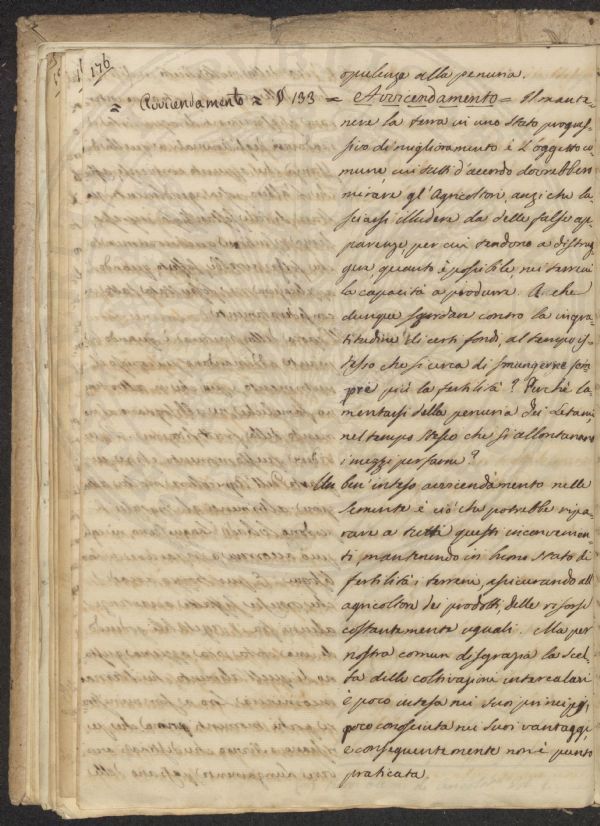 176
opulenza alla penuria.
= Avvicendamento = § 133 = Avvicendamento = Il mante-
nere la terra in uno stato progres-
sivo di miglioramento è l'oggetto co-
mune cui tutti d'accordo dovrebbero
mirare gl'Agricoltori, anzi che la-
sciarsi illudere da delle false ap-
parenze, per cui tendono a distrug-
gere quanto è possibile nei terreni
la capacità a produrre. A che
dunque sgridare contro la ingra-
titudine di certi fondi, al tempo i-
stesso che si cerca di smungerne sem-
pre più la fertilità? Perchè la-
mentarsi della penuria dei Letami,
nel tempo stesso che si allontanano
i mezzi per farne?
Un ben inteso avvicendamento nelle
semente è ciò che potrebbe ripa-
rare a tutti questi inconvenien-
ti mantenendo in buono stato di
fertilità i terreni, assicurando all'
agricoltore dei prodotti, delle risorse
costantemente uguali. Ma per
nostra comun disgrazia la scel-
ta delle coltivazioni intercalari
è poco intesa nei suoi principj,
poco conosciuta nei suoi vantaggi,
e conseguentemente non è punto
praticata.